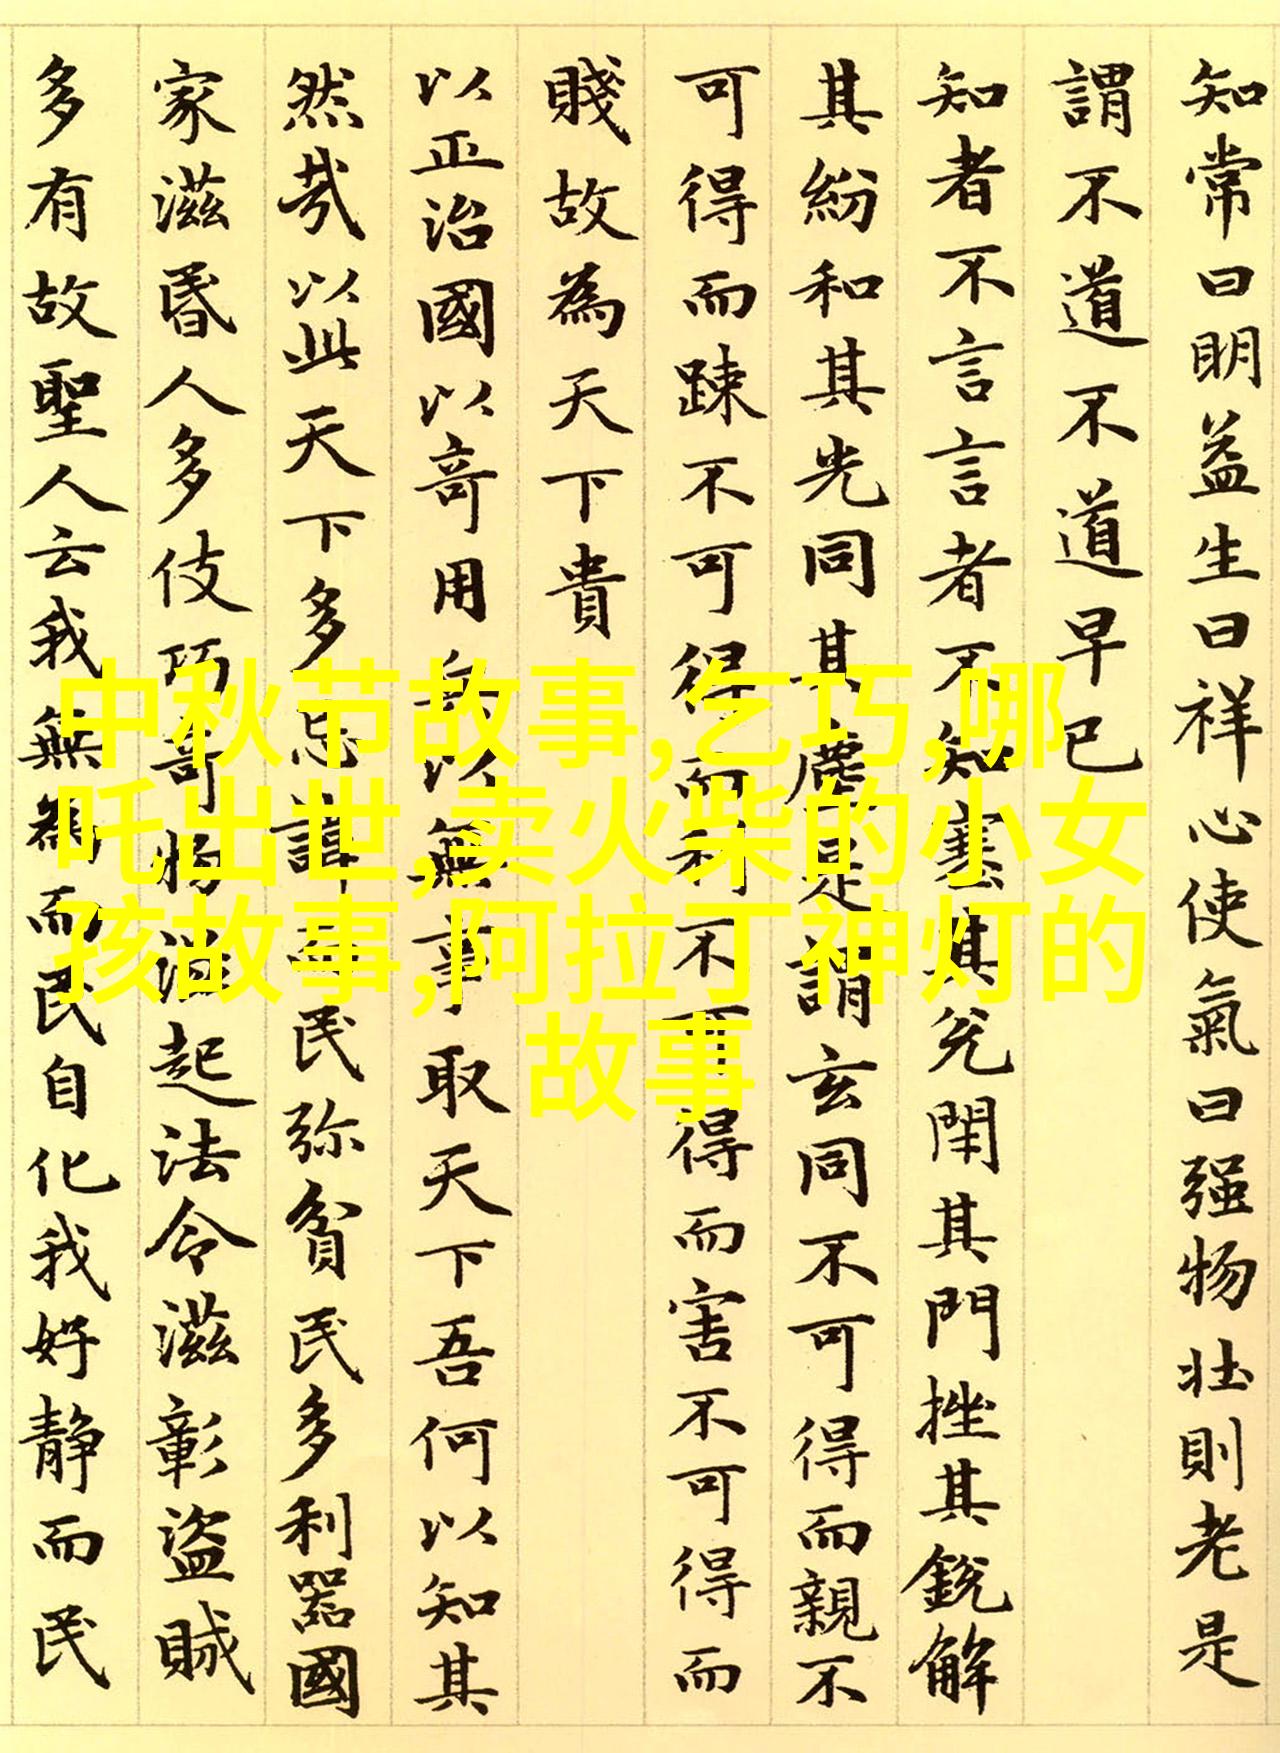 知常曰明益生曰祥心使氣曰强物壯則老是
謂不道不道早已
知者不言言者不知塞其兌閉其門挫其銳解
其紛和其光同其塵是謂玄同不可得而親不
可得而踈不可得而利不可得而害不可得而
賤故為天下貴
以正治國以奇用兵以無事取天下吾何以知其
然哉以此天下多忌諱而民弥貧民多利器國
家滋昬人多伎巧奇物滋起法令滋彰盜賊
多有故聖人云我無為而民自化我好静而民
中秋节故事,乞巧,哪
吒出世,卖火柴的小女
孩故事,阿拉丁神灯的
故事